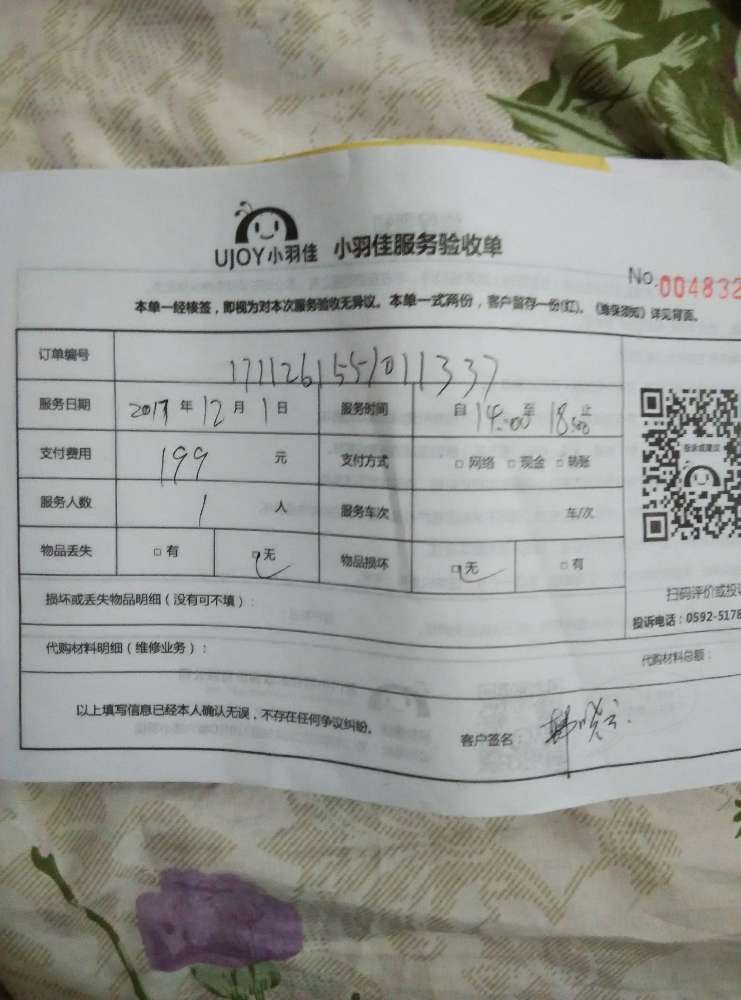 UJOY小羽佳 小羽佳服务验收单
No.004832
本单一经核签，即视为对本次服务验收无异议。本单一式两份，客户留存一份(红)。《 》详见背面。
订单编号 17112615551011337
服务日期 2017年12月1日 服务时间 自14:00至18:00止
支付费用 199元 支付方式 □网络 □现金 □转账
服务人数 1人 服务车次 车/次
物品丢失 □有 □无 物品损坏 □无 □有
投诉或建议
扫码评价或投
投诉电话：0592-5178
损坏或丢失物品明细（没有可不填）：
代购材料明细（维修业务）： 代购材料总额：
以上填写信息已经本人确认无误，不存在任何争议纠纷。 客户签名